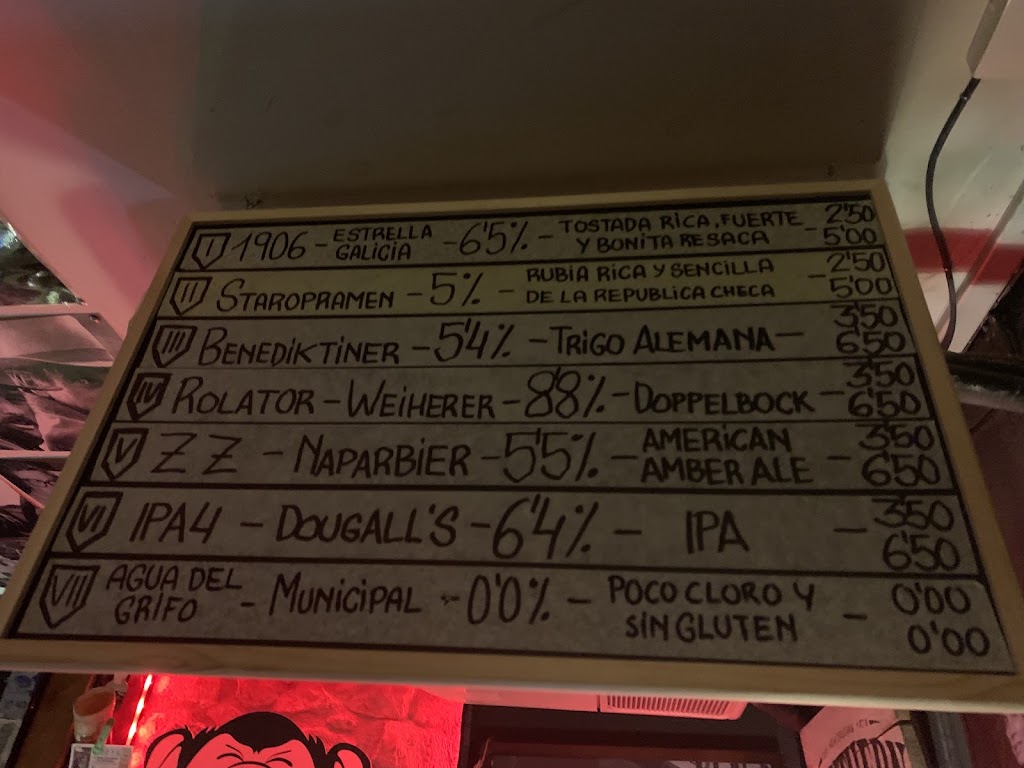 I 1906 - ESTRELLA GALICIA - 6'5% - TOSTADA RICA, FUERTE Y BONITA RESACA - 2'50 5'00
II STAROPRAMEN - 5% - RUBIA RICA Y SENCILLA DE LA REPUBLICA CHECA - 2'50 5'00
III BENEDIKTINER - 5'4% - TRIGO ALEMANA - 3'50 6'50
IV ROLATOR - WEIHERER - 8'8% - DOPPELBOCK - 3'50 6'50
V ZZ - NAPARBIER - 5'5% - AMERICAN AMBER ALE - 3'50 6'50
VI IPA4 - DOUGALL'S - 6'4% - IPA - 3'50 6'50
VII AGUA DEL GRIFO - MUNICIPAL - 0'0% - POCO CLORO Y SIN GLUTEN - 0'00 0'00